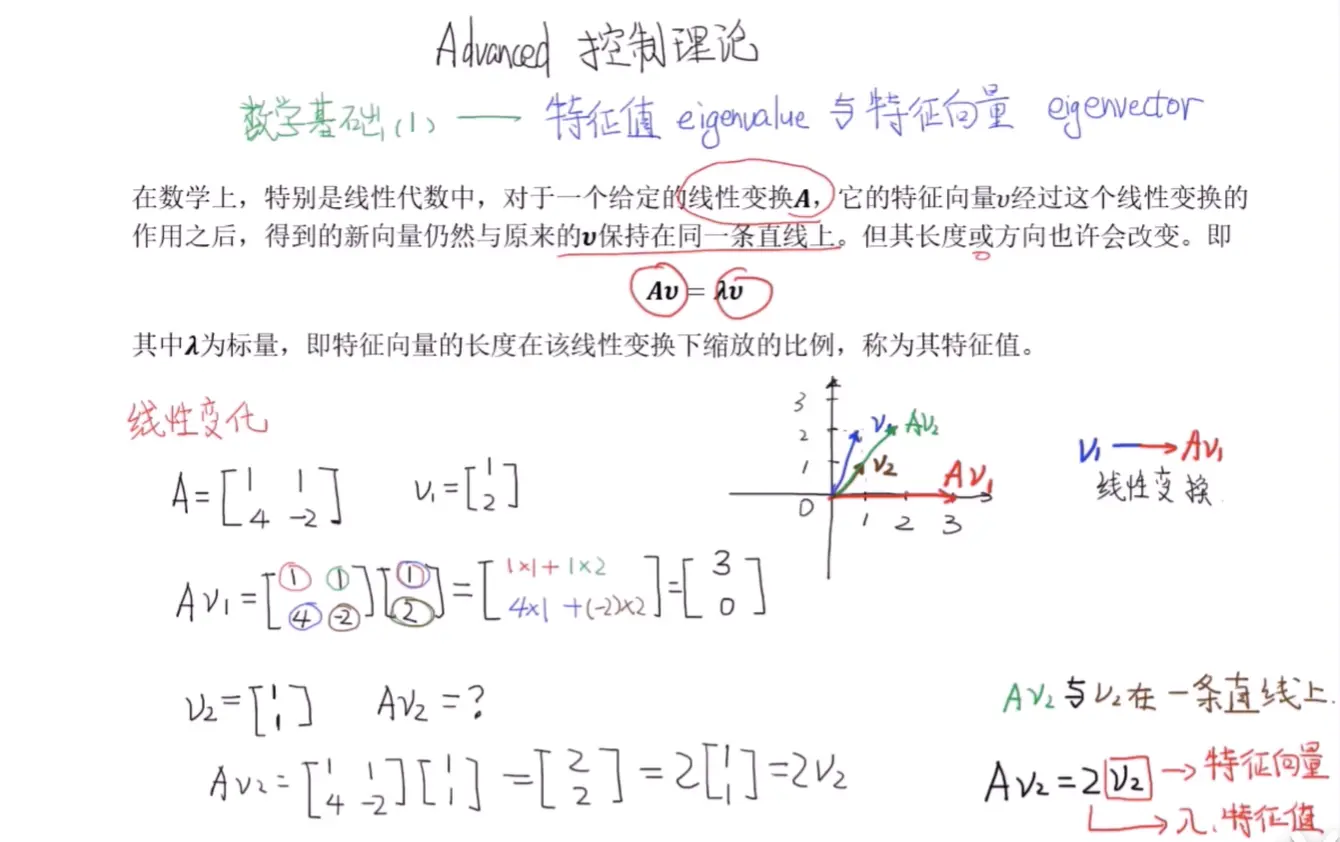 Advanced 控制理论
数学基础(1) —— 特征值 eigenvalue 与特征向量 eigenvector
在数学上，特别是线性代数中，对于一个给定的线性变换A，它的特征向量υ经过这个线性变换的
作用之后，得到的新向量仍然与原来的υ保持在同一条直线上。但其长度或方向也许会改变。即
Aυ = λυ
其中λ为标量，即特征向量的长度在该线性变换下缩放的比例，称为其特征值。
线性变化
A = [1 1; 4 -2] v₁ = [1; 2]
3
2
1
0 1 2 3
v₁ Av₂
v₂
Av₁
v₁ → Av₁
线性变换
Av₁ = [1 1; 4 -2][1; 2] = [1×1+1×2; 4×1+(-2)×2] = [3; 0]
v₂ = [1; 1] Av₂ = ?
Av₂ = [1 1; 4 -2][1; 1] = [2; 2] = 2[1; 1] = 2v₂
Av₂与v₂在一条直线上.
Av₂ = 2v₂ → 特征向量
→ λ. 特征值